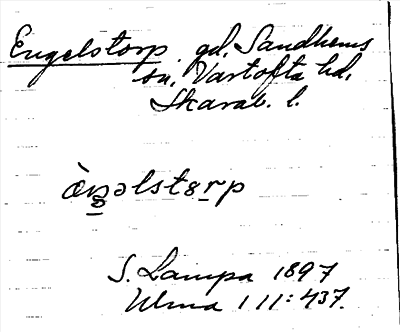 Engelstorp gd. Sandhems
sn. Vartofta hd.
Skarab. l.
S. Lampa 1897
Ulma 111:437.